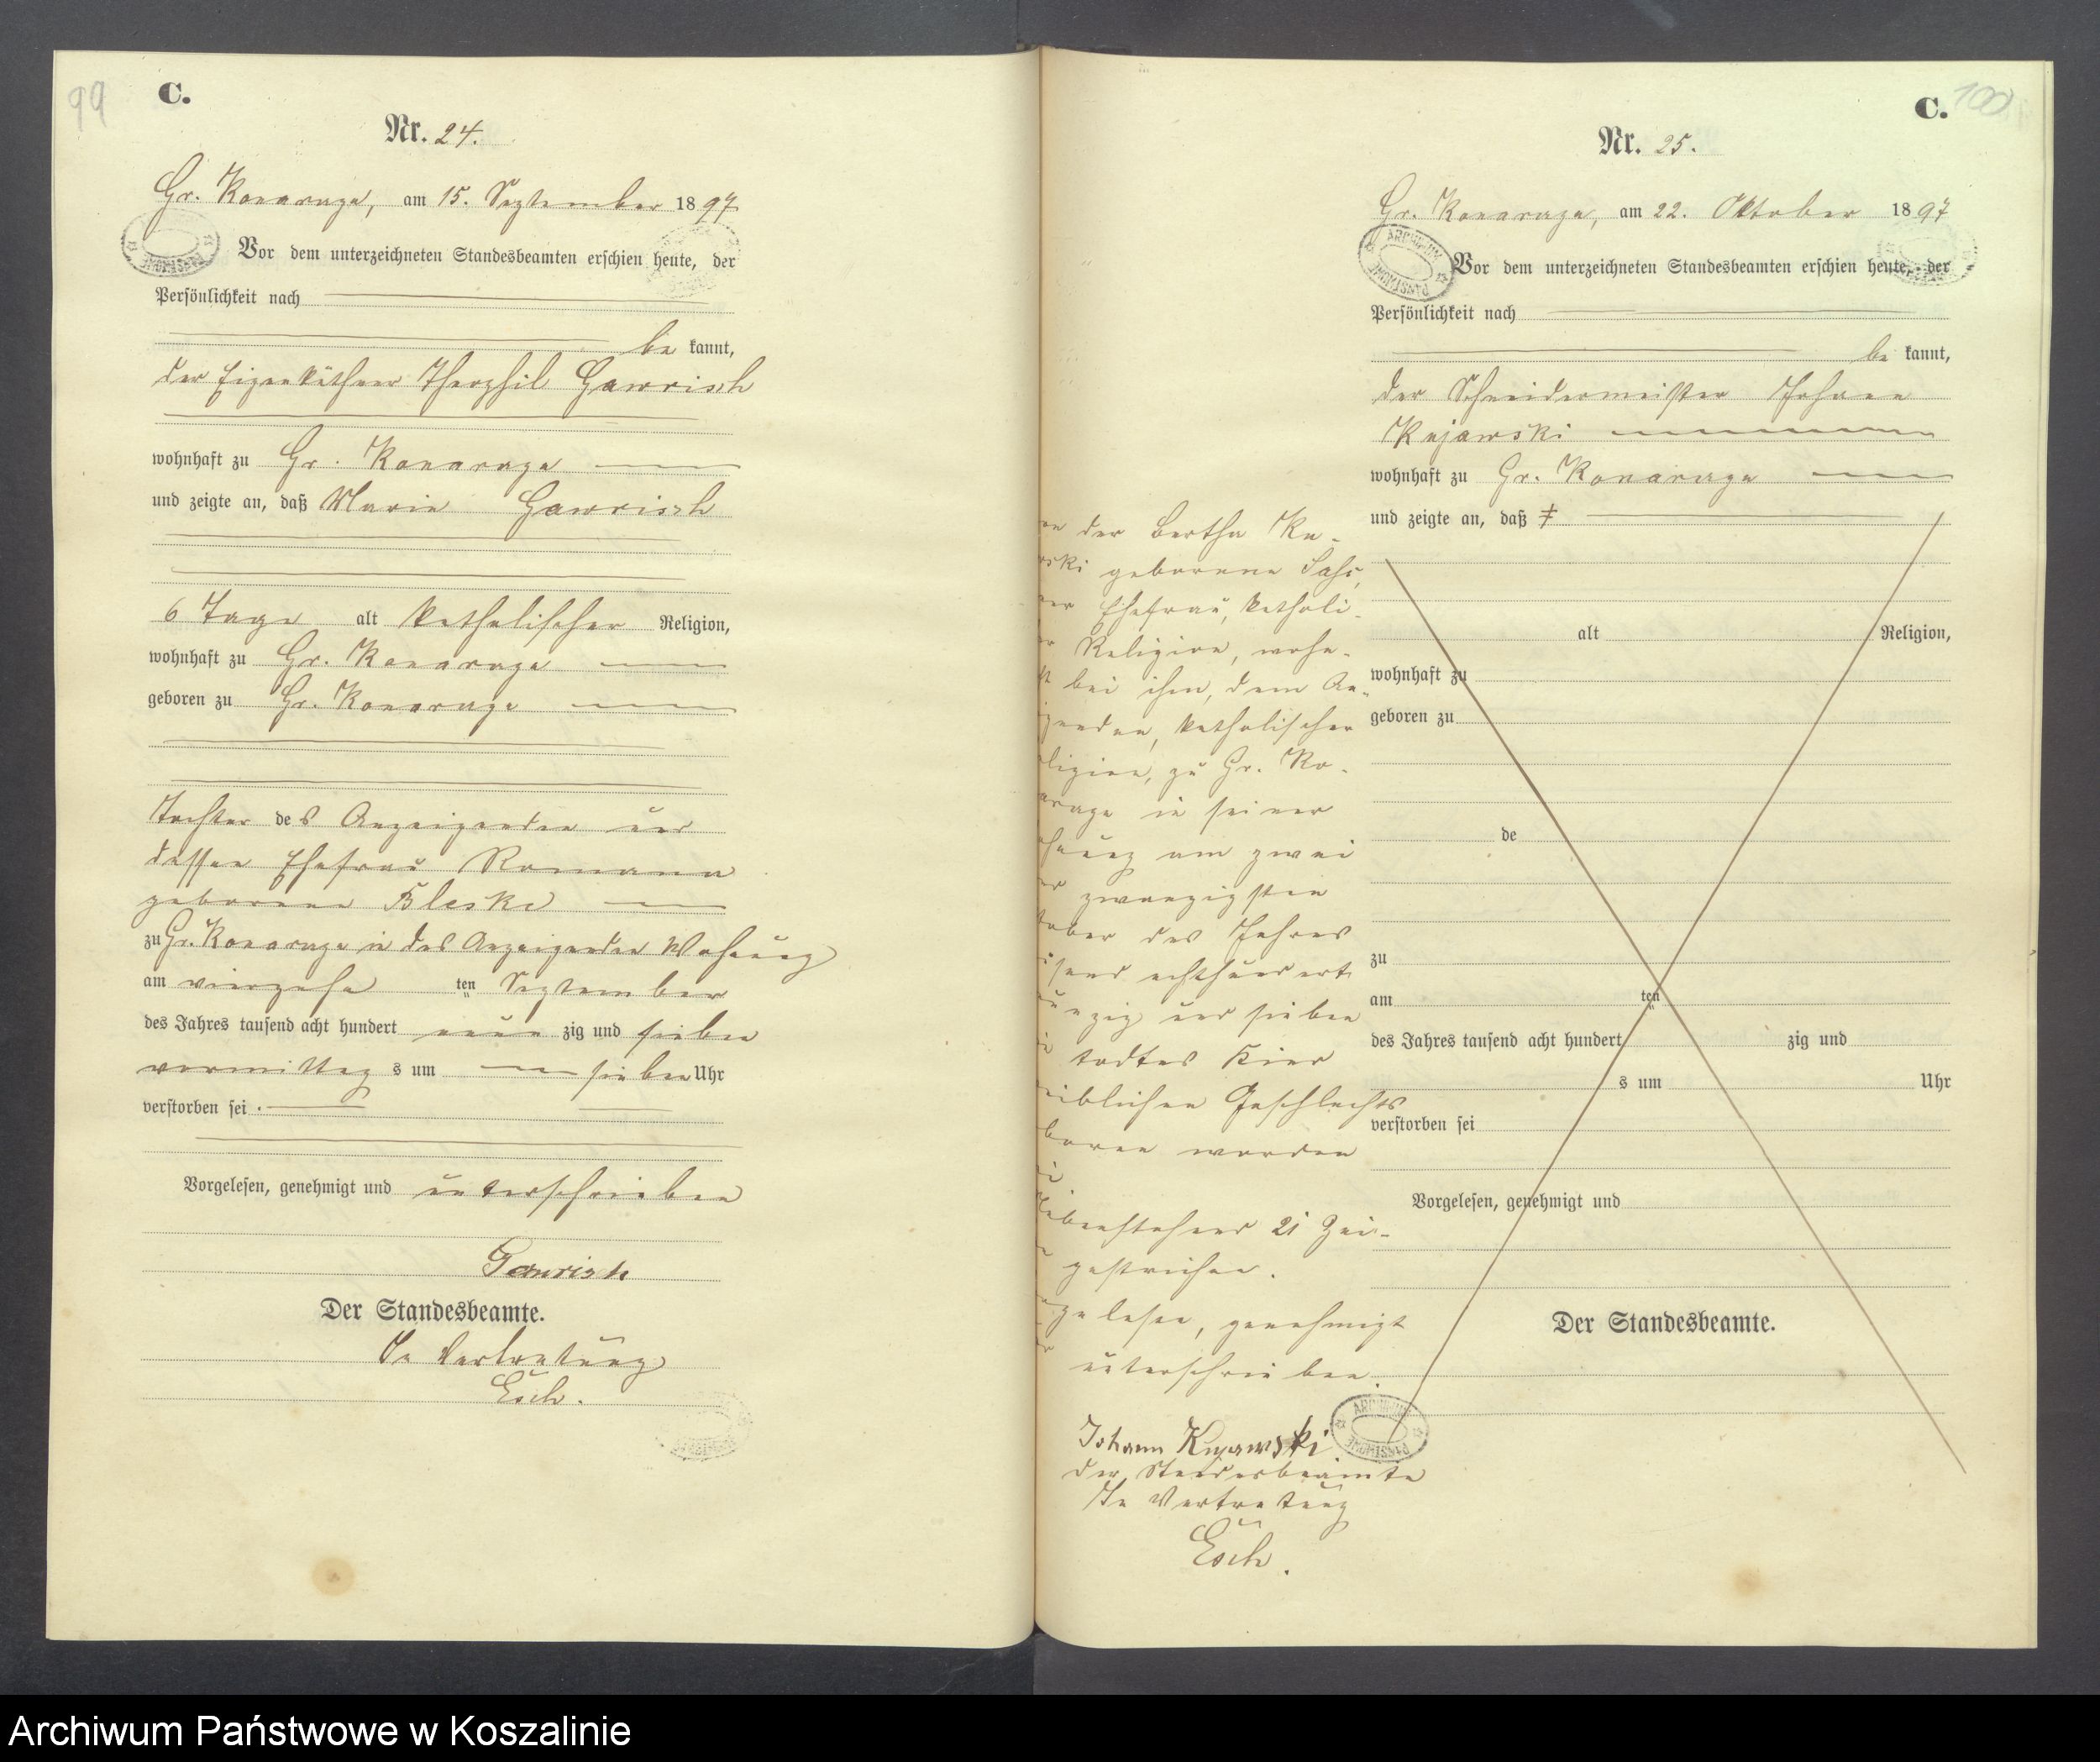 99
C.
Nr. 24.
Gr. Konarzyn, am 15. September 1897
Vor dem unterzeichneten Standesbeamten erschien heute, der
Persönlichkeit nach
be kannt,
der Eigenkäthner Theophil Gawrisch
wohnhaft zu Gr. Konarzyn
und zeigte an, daß Marie Gawrisch
6 Tage alt katholischer Religion,
wohnhaft zu Gr. Konarzyn
geboren zu Gr. Konarzyn
Tochter des Anzeigenden und
dessen Ehefrau
geborene Bleske
zu Gr. Konarzyn in des Anzeigenden Wohnung
am vierzehn ten September
des Jahres tausend acht hundert neun zig und sieben
vormittag s um sieben Uhr
verstorben sei.
Vorgelesen, genehmigt und unterschrieben
Gawrisch
Der Standesbeamte.
In Vertretung
Esch.
C. 100
Nr. 25.
Gr. Konarzyn, am 22. Oktober 1897
Vor dem unterzeichneten Standesbeamten erschien heute, der
Persönlichkeit nach
be kannt,
der Schneidermeister Johann
Kujawski
wohnhaft zu Gr. Konarzyn
und zeigte an, daß ‡
alt Religion,
wohnhaft zu
geboren zu
de
zu
am ten
des Jahres tausend acht hundert zig und
s um Uhr
verstorben sei
Vorgelesen, genehmigt und
Der Standesbeamte.
der Bertha Ku-
wski geborene
Ehefrau, katholi-
Religion, wohn-
bei ihm, dem An-
zeigenden, katholischer
ligion, zu Gr. Ko-
in seiner
hnung am zwei
zwanzigsten
tober des Jahres
send achthundert
nzig und sieben
todtes Kind
eiblichen Geschlechts
boren worden
ebenstehend 21 Zei-
gestrichen.
gelesen, genehmigt
unterschrieben.
Johann Kujawski
Der Standesbeamte
In Vertretung
Esch.
Archiwum Państwowe w Koszalinie